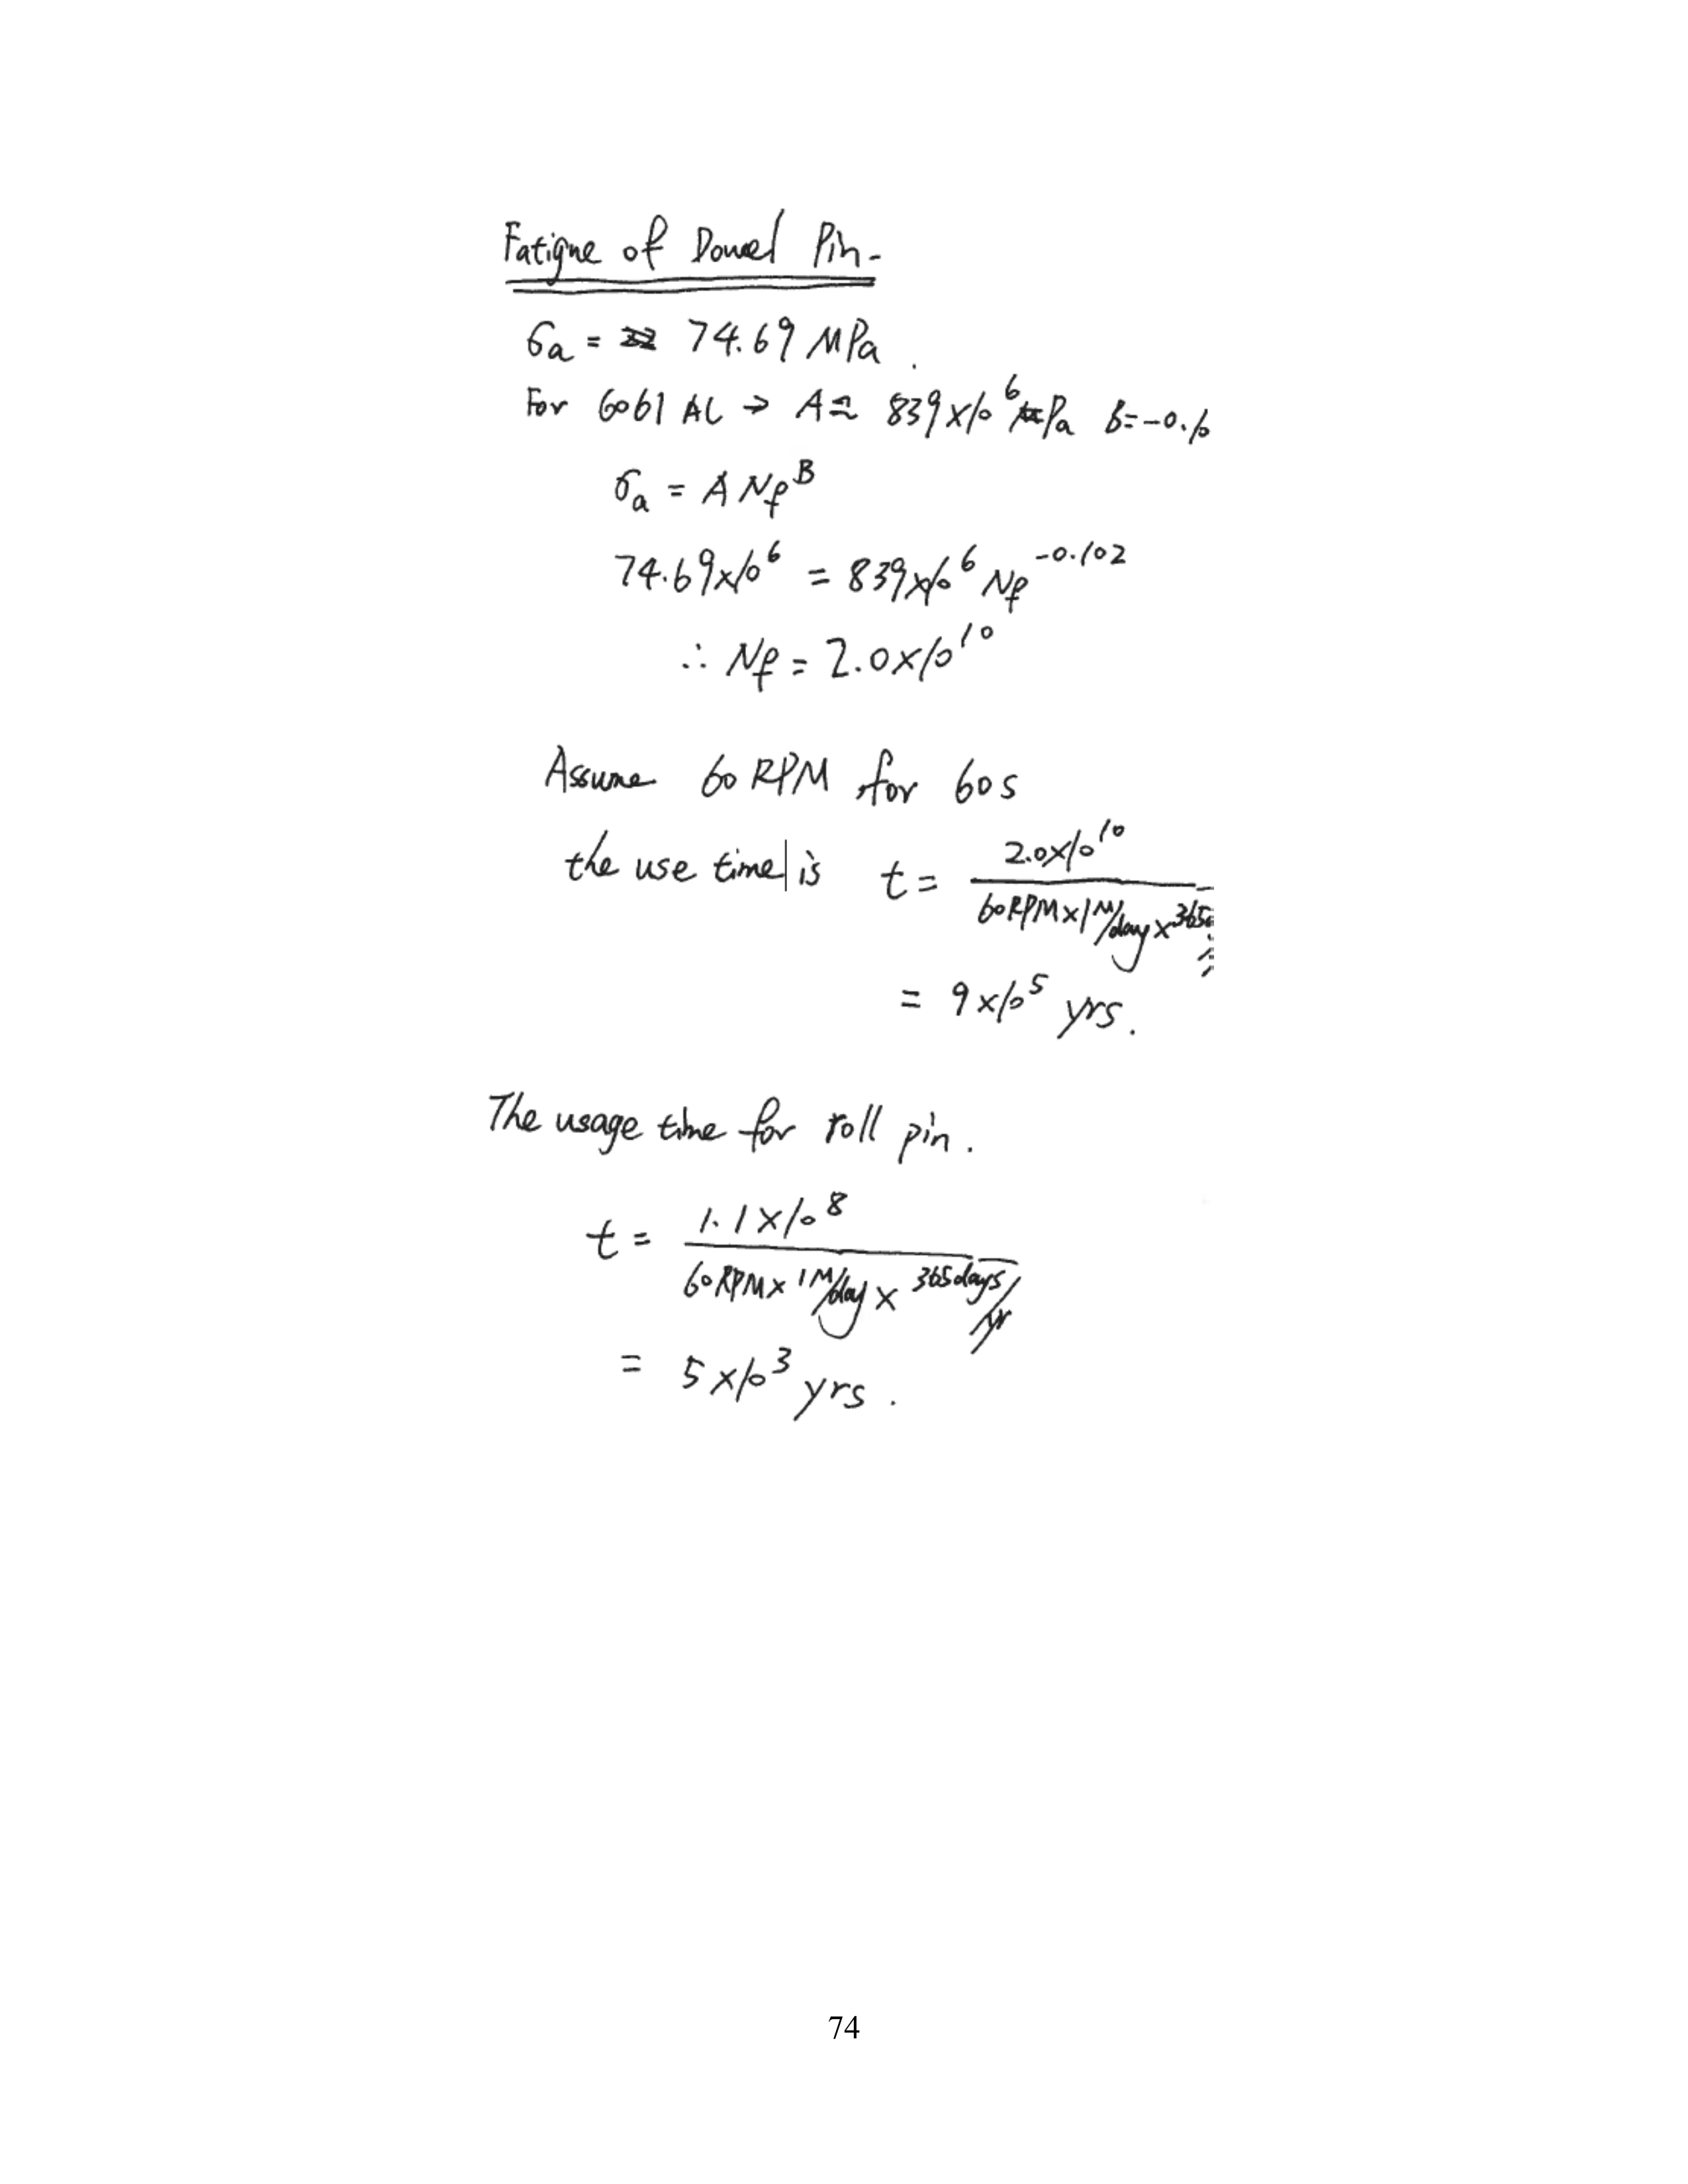 Fatigue of Dowel Pin-
σa = 74.69 MPa.
For 6061 AL → A = 839x10^6 Pa B=-0.10
σa = A Nf^B
74.69x10^6 = 839x10^6 Nf^-0.102
∴ Nf = 2.0x10^10
Assume 60 RPM for 60s
the use time is t = 2.0x10^10
60RPMx1M/day x 365
= 9x10^5 yrs.
The usage time for roll pin.
t = 1.1x10^8
60RPMx 1M/day x 365days/yr
= 5x10^3 yrs.
74